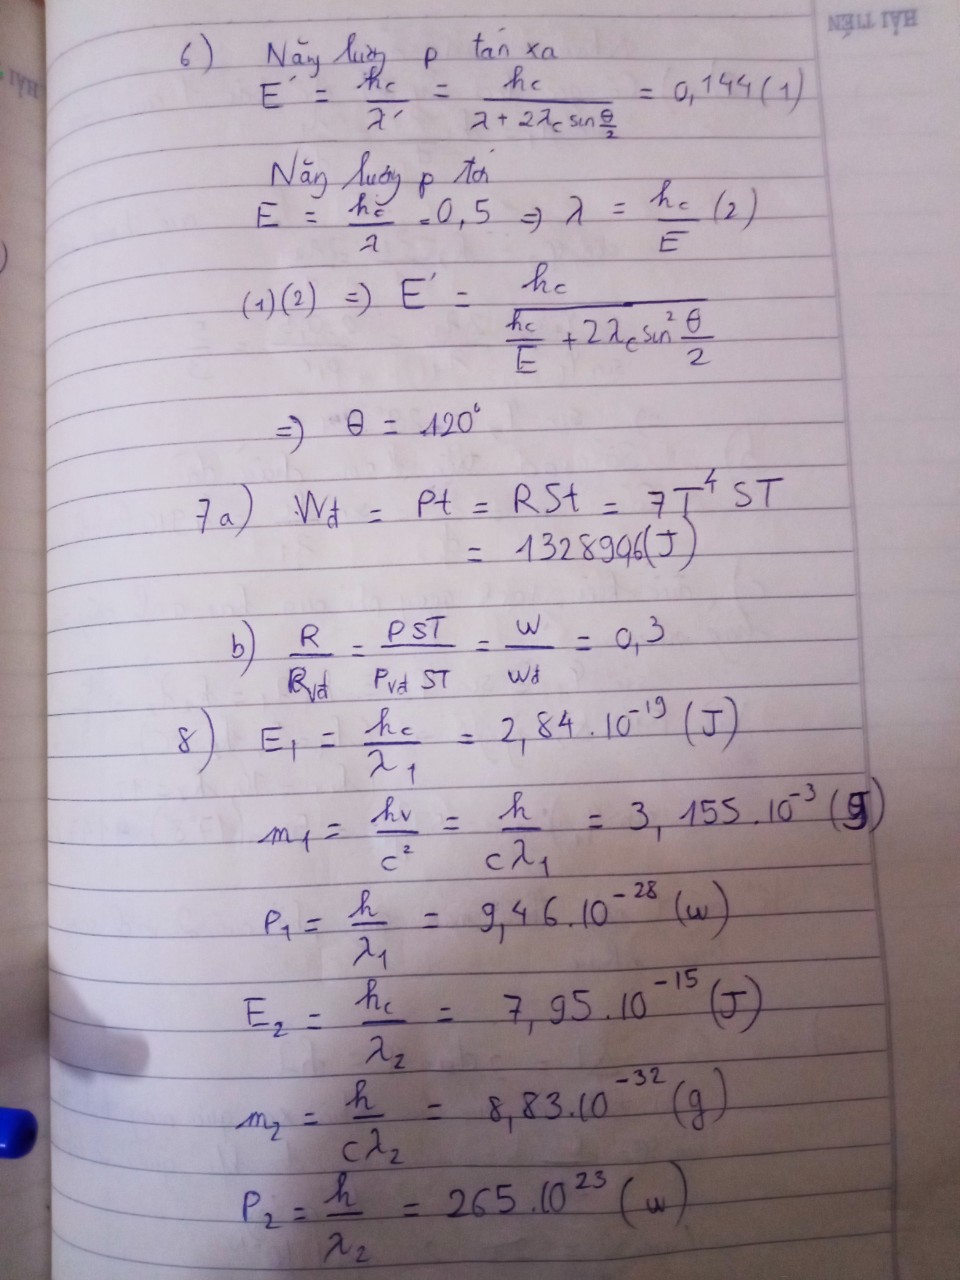 HẢI TIẾN
6) Năng lượng p tán xạ
E' = hc/λ' = hc/(λ + 2λc sin θ/2) = 0,144 (1)
Năng lượng p tới
E = hc/λ = 0,5 => λ = hc/E (2)
(1)(2) => E' = hc/(hc/E + 2λc sin² θ/2)
=> θ = 120°
7a) Wd = Pt = RSt = 7T⁴ ST
= 1328996(J)
b) R/Rvd = PST/Pvd ST = W/Wd = 0,3
8) E₁ = hc/λ₁ = 2,84.10⁻¹⁹ (J)
m₁ = hv/c² = h/cλ₁ = 3,155.10⁻³ (g)
P₁ = h/λ₁ = 9,46.10⁻²⁸ (w)
E₂ = hc/λ₂ = 7,95.10⁻¹⁵ (J)
m₂ = h/cλ₂ = 8,83.10⁻³² (g)
P₂ = h/λ₂ = 265.10²³ (w)